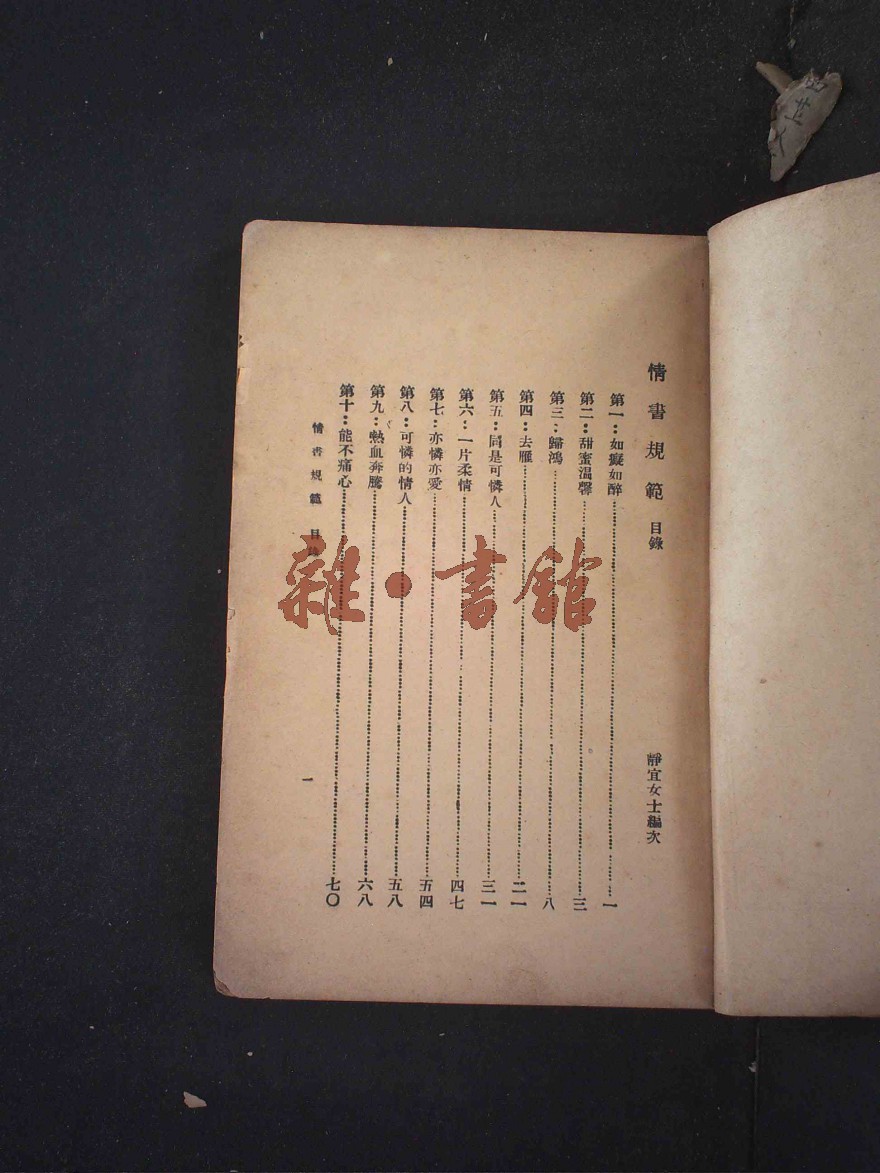 情書規範 目錄 靜宜女士編次
第一：如癡如醉 一
第二：甜蜜溫馨 三
第三：歸鴻 八
第四：去雁 二一
第五：同是可憐人 三一
第六：一片柔情 四七
第七：亦憐亦愛 五四
第八：可憐的情人 五八
第九：熱血奔騰 六八
第十：能不痛心 七〇
情書規範 目 一
雜·書館